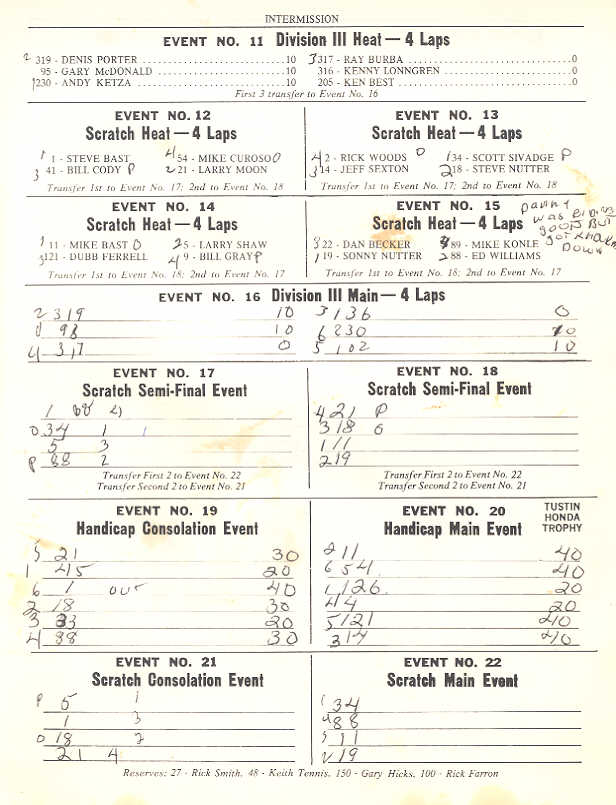 INTERMISSION
EVENT NO. 11 Division III Heat — 4 Laps
2 319 - DENIS PORTER ..........10 3 317 - RAY BURBA ..........0
95 - GARY McDONALD ..........10 316 - KENNY LONNGREN ..........0
1 230 - ANDY KETZA ..........10 205 - KEN BEST ..........0
First 3 transfer to Event No. 16
EVENT NO. 12
Scratch Heat — 4 Laps
1 1 - STEVE BAST 4 54 - MIKE CUROSO O
3 41 - BILL CODY P 2 21 - LARRY MOON
Transfer 1st to Event No. 17; 2nd to Event No. 18
EVENT NO. 13
Scratch Heat — 4 Laps
4 2 - RICK WOODS O 1 34 - SCOTT SIVADGE P
3 14 - JEFF SEXTON 2 18 - STEVE NUTTER
Transfer 1st to Event No. 17; 2nd to Event No. 18
EVENT NO. 14
Scratch Heat — 4 Laps
1 11 - MIKE BAST O 2 5 - LARRY SHAW
3 121 - DUBB FERRELL 4 9 - BILL GRAY P
Transfer 1st to Event No. 18; 2nd to Event No. 17
EVENT NO. 15
Scratch Heat — 4 Laps
was riding
good But
got
Down
3 22 - DAN BECKER 89 - MIKE KONLE
1 19 - SONNY NUTTER 2 88 - ED WILLIAMS
Transfer 1st to Event No. 18; 2nd to Event No. 17
EVENT NO. 16 Division III Main — 4 Laps
2 319 10 3 136 0
1 98 10 6 230 10
4 317 0 5 102 10
EVENT NO. 17
Scratch Semi-Final Event
1 4
O 34 1
5 3
P 88 2
Transfer First 2 to Event No. 22
Transfer Second 2 to Event No. 21
EVENT NO. 18
Scratch Semi-Final Event
4 21 P
3 18 O
1 11
2 19
Transfer First 2 to Event No. 22
Transfer Second 2 to Event No. 21
EVENT NO. 19
Handicap Consolation Event
5 21 30
1 45 20
6 1 out 40
2 18 30
3 33 20
4 88 30
EVENT NO. 20
Handicap Main Event
TUSTIN
HONDA
TROPHY
2 11 40
6 54 40
1 126 20
44 20
5 121 40
3 14 40
EVENT NO. 21
Scratch Consolation Event
P 5 1
1 3
O 18 2
21 4
EVENT NO. 22
Scratch Main Event
1 34
4 88
3 11
2 19
Reserves: 27 - Rick Smith, 48 - Keith Tennis, 150 - Gary Hicks, 100 - Rick Farron